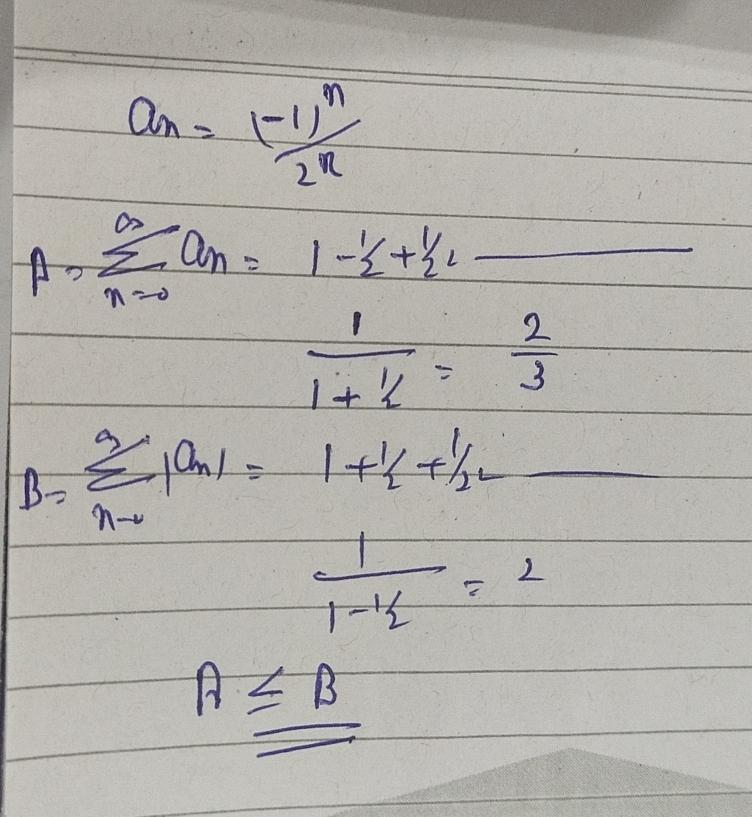 an = (-1)^n / 2^n
A = ∑_{n=0}^{∞} an = 1 - 1/2 + 1/2² ———
1 / (1 + 1/2) = 2/3
B = ∑_{n=0}^{∞} |an| = 1 + 1/2 + 1/2² ———
1 / (1 - 1/2) = 2
A ≤ B